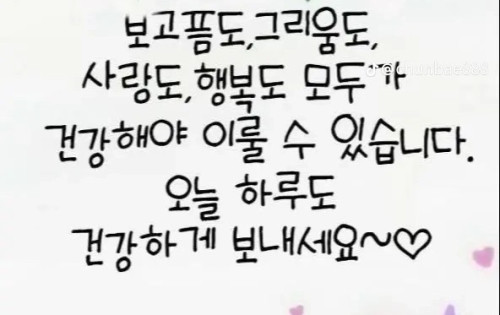 보고픔도,그리움도,
사랑도,행복도 모두가
건강해야 이룰 수 있습니다.
오늘 하루도
건강하게 보내세요~♡